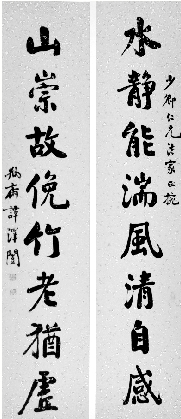 水静能湍風清自感
少卿仁兄法家正捥
山崇故俛竹老猶虛
瓶齋譚澤闓